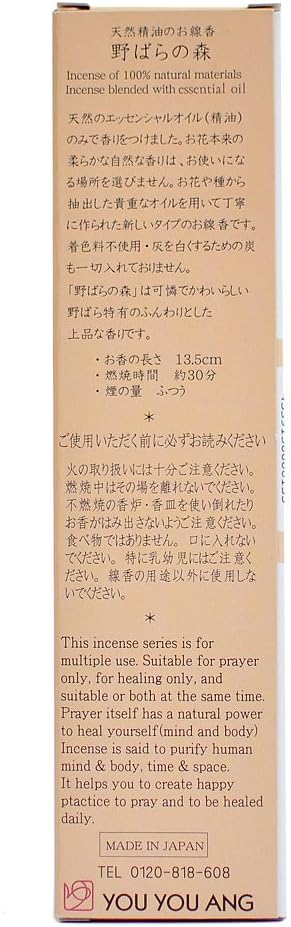 天然精油のお線香
野ばらの森
Incense of 100% natural materials
Incense blended with essential oil
天然のエッセンシャルオイル(精油)
のみで香りをつけました。お花本来の
柔らかな自然な香りは、お使いにな
る場所を選びません。お花や種から
抽出した貴重なオイルを用いて丁寧
に作られた新しいタイプのお線香です。
着色料不使用・灰を白くするための炭
も一切入れておりません。
「野ばらの森」は可憐でかわいらしい
野ばら特有のふんわりとした
上品な香りです。
・お香の長さ 13.5cm
・燃焼時間 約30分
・煙の量 ふつう
*
ご使用いただく前に必ずお読みください
火の取り扱いには十分ご注意ください。
燃焼中はその場を離れないでください。
不燃焼の香炉・香皿を使い倒れたり
お香がはみ出さないようご注意ください。
食べ物ではありません。口に入れない
でください。特に乳幼児にはご注意く
ださい。線香の用途以外に使用しな
いでください。
*
This incense series is for
multiple use. Suitable for prayer
only, for healing only, and
suitable or both at the same time.
Prayer itself has a natural power
to heal yourself(mind and body)
Incense is said to purify human
mind & body, time & space.
It helps you to create happy
ptactice to pray and to be healed
daily.
MADE IN JAPAN
TEL 0120-818-608
YOU YOU ANG